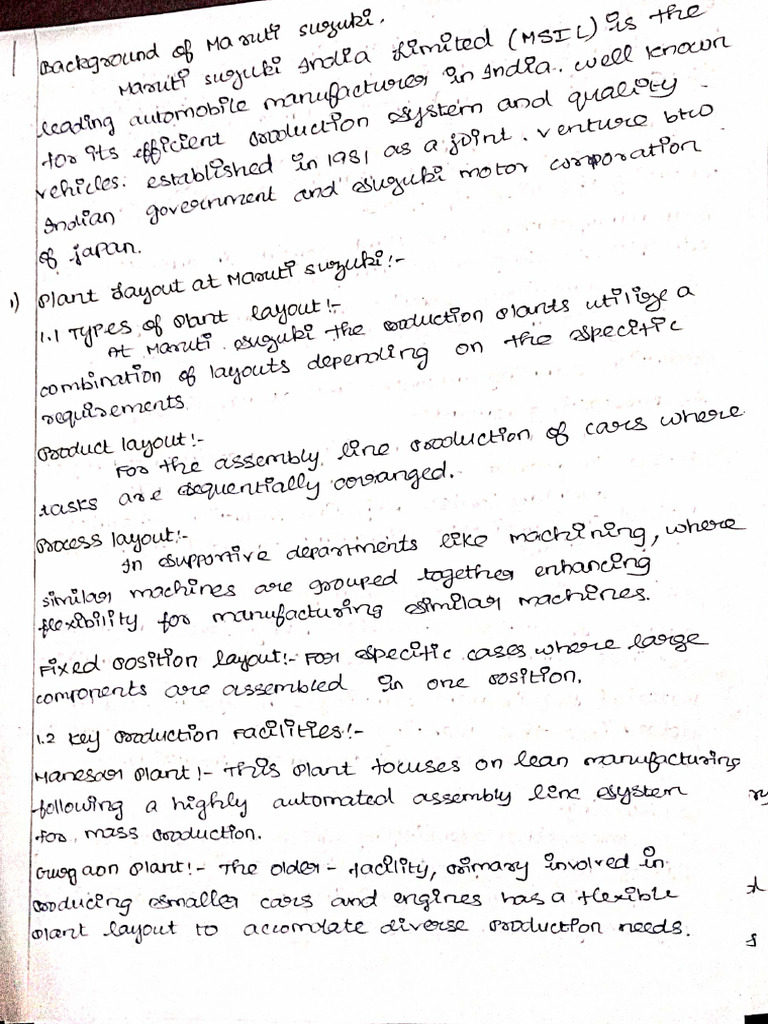 Background of Maruti suzuki.
Maruti suzuki India Limited (MSIL) is the
leading automobile manufacturer in India. well known
for its efficient production system and quality
vehicles. established in 1981 as a joint. venture btw
Indian government and Suzuki motor corporation
of japan.
1) Plant Layout at Maruti suzuki:-
1.1 Types of Plant layout:-
At Maruti suzuki the production plants utilize a
combination of layouts depending on the specific
requirements
Product layout:-
For the assembly line production of cars where
tasks are sequentially arranged.
Process layout:-
In supportive departments like machining, where
similar machines are grouped together enhancing
flexibility for manufacturing similar machines.
Fixed position layout:- For specific cases where large
components are assembled in one position.
1.2 Key production Facilities:-
Manesar Plant:- This plant focuses on lean manufacturing
following a highly automated assembly line system
for mass production.
Gurgaon Plant:- The older - facility, primary involved in
producing smaller cars and engines has a flexible
plant layout to accomdate diverse production needs.